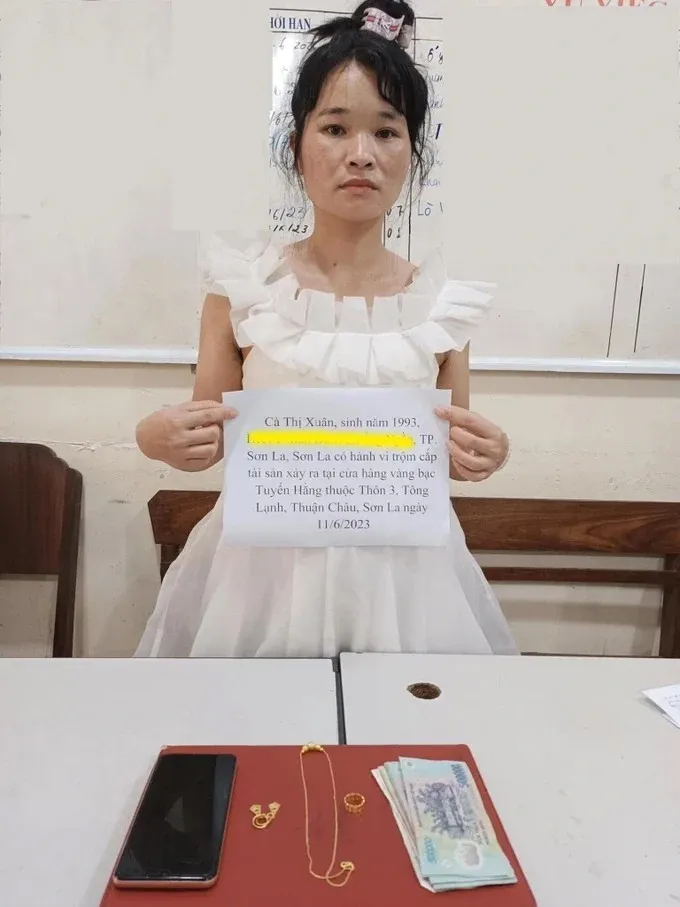 HỜI HẠN
VỤ VIỆC
16/23
Lò V
Cà Thị Xuân, sinh năm 1993,
TP.
Sơn La, Sơn La có hành vi trộm cắp
tài sản xảy ra tại cửa hàng vàng bạc
Tuyển Hằng thuộc Thôn 3, Tông
Lạnh, Thuận Châu, Sơn La ngày
11/6/2023